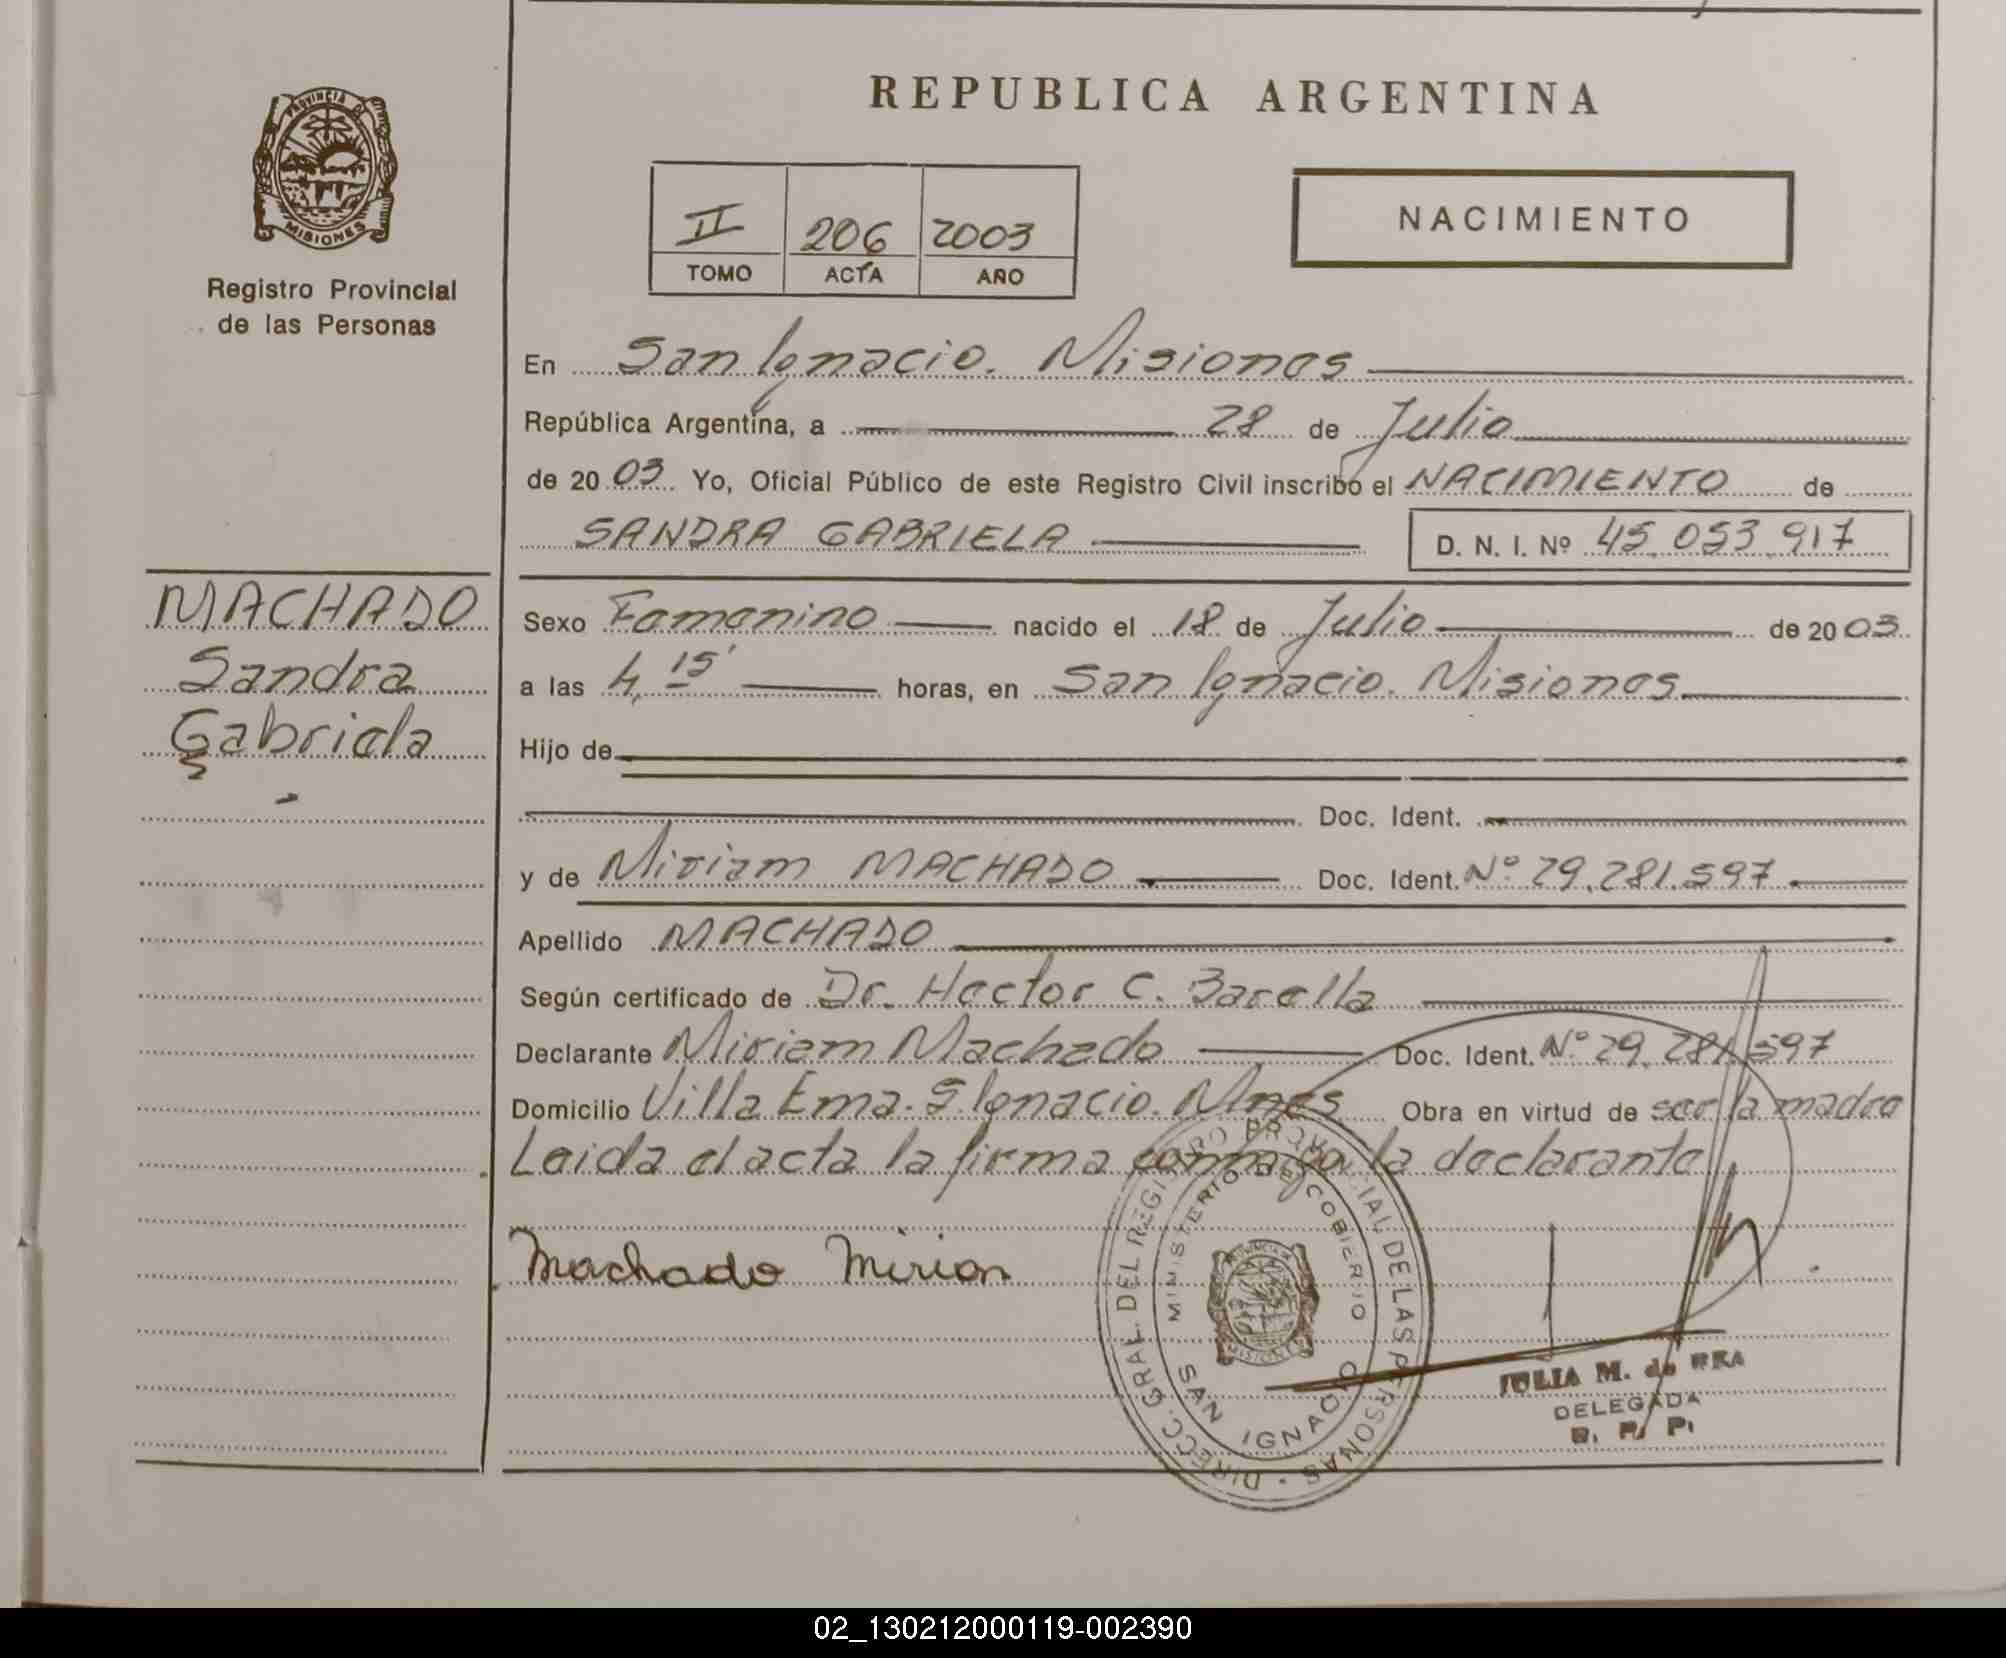 REPUBLICA ARGENTINA
PROVINCIA DE
MISIONES
Registro Provincial
de las Personas
II 206 2003
TOMO ACTA AÑO
NACIMIENTO
En San Ignacio. Misiones
República Argentina, a 28 de Julio
de 2003 Yo, Oficial Público de este Registro Civil inscribo el NACIMIENTO de
SANDRA GABRIELA D. N. I. Nº 45.053.917
MACHADO
Sandra
Gabriela
Sexo Femenino nacido el 18 de Julio de 2003
a las 4,15' horas, en San Ignacio. Misiones
Hijo de
Doc. Ident.
y de Miriam MACHADO Doc. Ident. Nº 29.281.597
Apellido MACHADO
Según certificado de Dr. Hector C. Barella
Declarante Miriam Machado Doc. Ident. Nº 29.281.597
Domicilio Villa Ema. S. Ignacio. Mnes Obra en virtud de ser la madre
Leida el acta la firma conmigo la declarante
Machado Mirian
DIRECC. GRAL. DEL REGISTRO PROVINCIAL DE LAS PERSONAS
MINISTERIO DE GOBIERNO
SAN IGNACIO
JULIA M. de REA
DELEGADA
R. P. P.
02_130212000119-002390